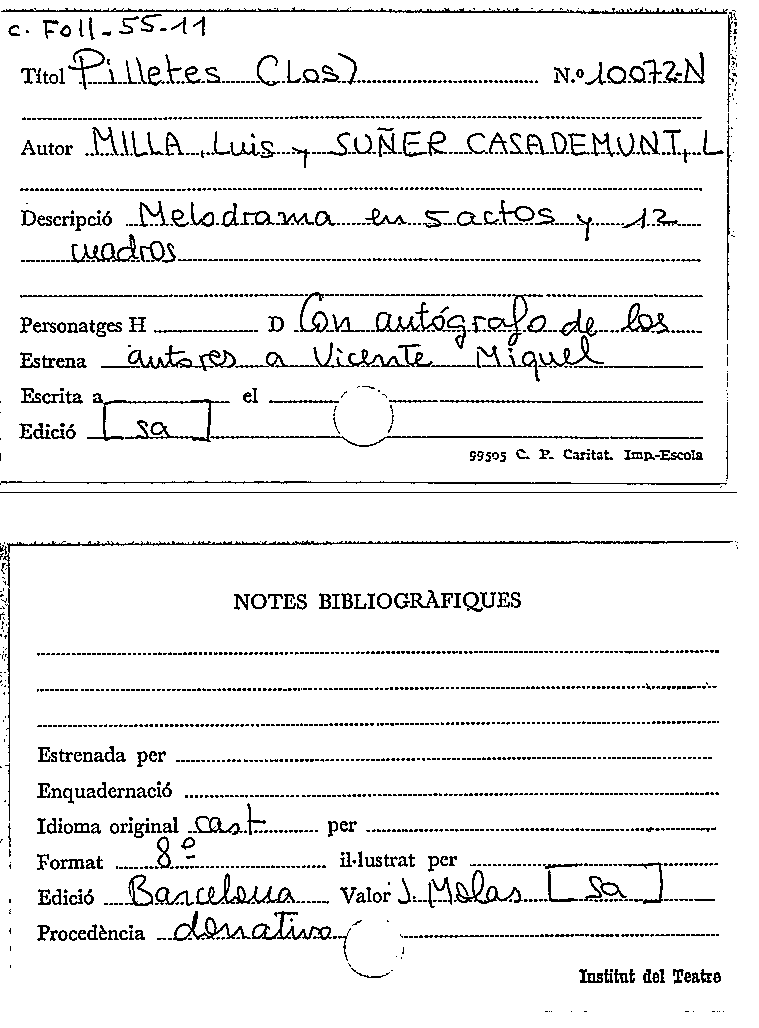 c. Foll-55-11
Títol Pilletes (Los) N.º 10072-N
Autor MILLA, Luis y SUÑER CASADEMUNT, L
Descripció Melodrama en 5 actos y 12
cuadros
Personatges H D Con autógrafo de los
Estrena autores a Vicente Miquel
Escrita a el
Edició [sa]
99505 C. P. Caritat. Imp.-Escola
NOTES BIBLIOGRÀFIQUES
Estrenada per
Enquadernació
Idioma original cast per
Format 8º il·lustrat per
Edició Barcelona Valor J. Molas [sa]
Procedència donativo
Institut del Teatre